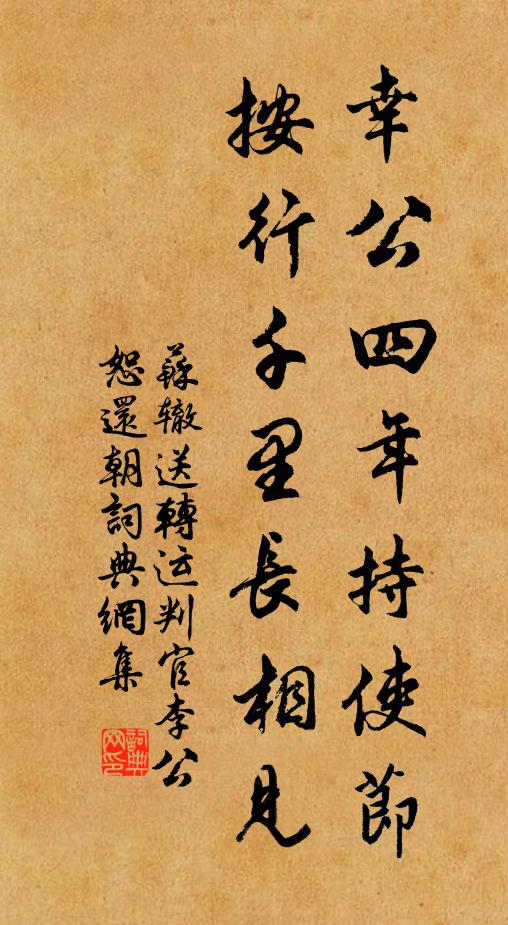 幸公四年持使節
按行千里長相見
蘇辙送轉运判官李公
恕還朝詞典網集
詞典
网印